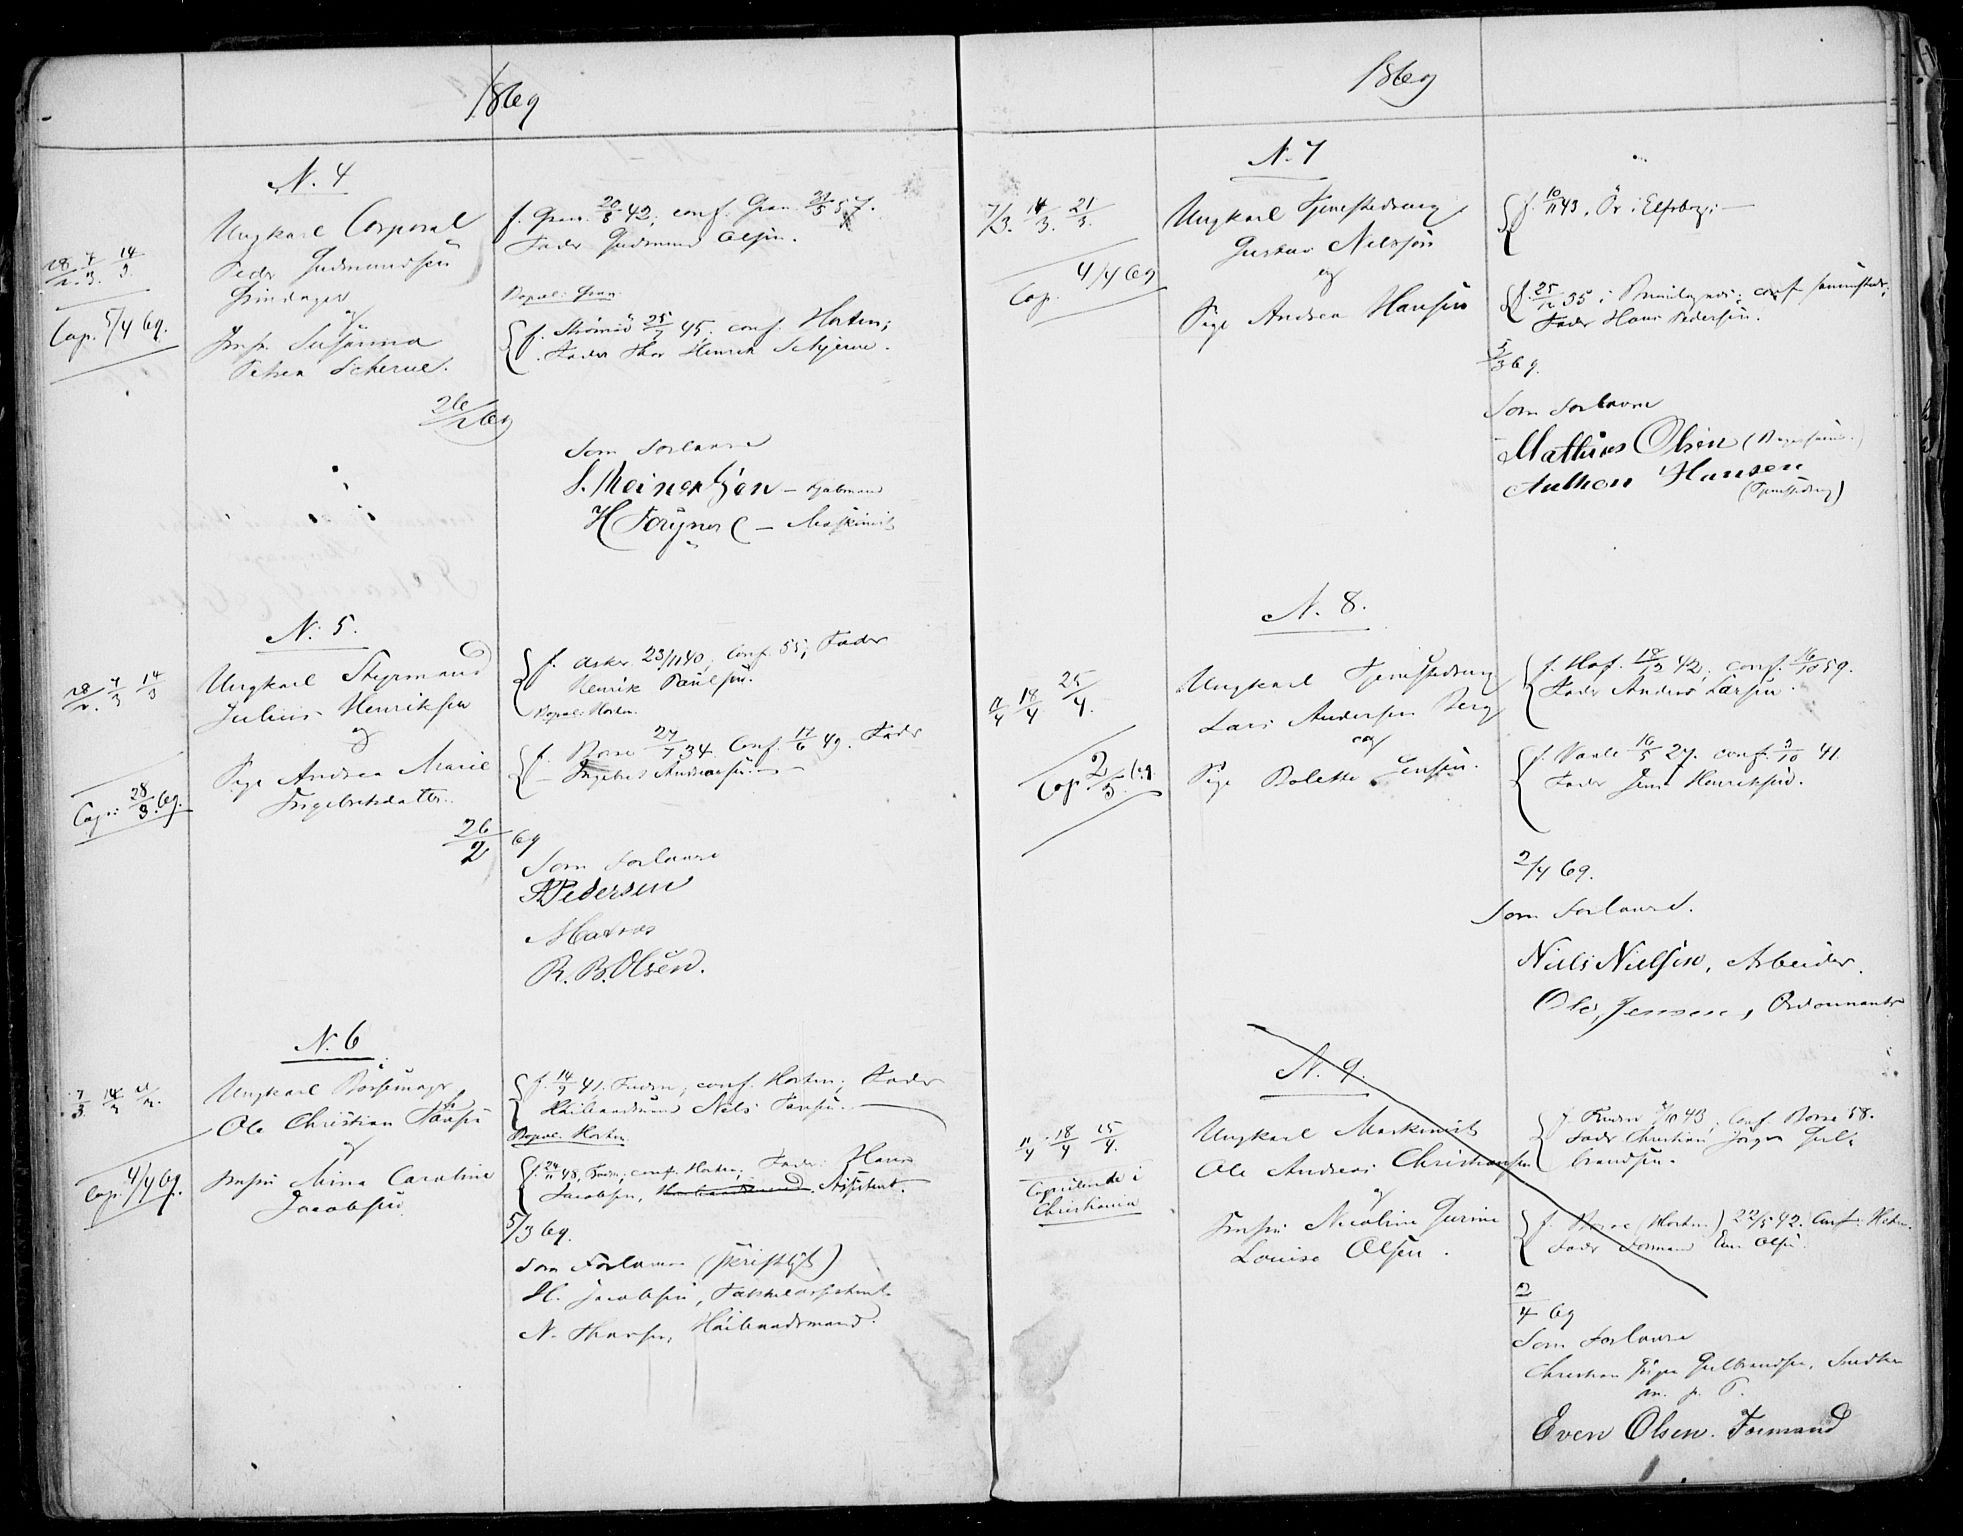 1869
N. 4
28/2. 7/3. 14/3
Cop. 5/4 69.
Ungkarl Corporal
Peder Gudmundsen
og
Jomfr. Susanna
Petrea Scherve.
f. Gran 20/8 42; conf. Gran 31/5 57.
Fader Gudmund Olsen.
Bopæl: Gran.
f. Strömsö 25/7 45. conf. Horten;
Fader Thor Henrik Schjerve.
26/2 69
Som Forlovere
S. Meinertzen –
H – Maskinist
N. 5.
28/2. 7/3 14/3
Cop: 28/3. 69.
Ungkarl Styrmand
Julius Henriksen
og
Pige Andrea Marie
Ingebretsdatter.
f. Asker 23/11 40, Conf. 55; Fader
Henrik Paulsen.
Bopæl: Horten.
f. Borre 27/7 34. Conf. 17/6 49. Fader
Ingebret Andreasen.
26/2 69
Som Forlovere
A Pedersen
Matros
R. B. Olsen.
N. 6
7/3 14/3 21/3.
Cop. 4/4 69.
Ungkarl Børsemager
Ole Christian Tharsen
og
Jomfru Mina Caroline
Jacobsen
f. 14/9 41. conf. Horten; Fader
Haibaadsmand Nils Tarsen.
Bopæl: Horten.
f. 24/11 48, conf. Horten; Fader: Hans
Jacobsen, Assistent.
5/3 69.
Som Forlovere (skriftligt)
H. Jacobsen,
N. Tharsen, Haibaadsmand.
1869
N. 7
7/3. 14/3. 21/3.
Cop. 4/4 69
Ungkarl Tjenestedreng
Gustav Nilssön
og
Pige Andrea Hansen
f. 10/11 43. Ör i Elfsborg: –
f. 25/12 35 i conf. sammesteds;
Fader Hans Pedersen.
5/3 69.
Som Forlovere
Mathias Olsen
Anthon Hansen
(Tjenestedreng)
N. 8.
11/4 18/4 25/4.
Cop 2/5. 69.
Ungkarl Tjenestedreng
Lars Andersen Berg
og
Pige Bolette Jensen.
f. Hof. 18/12 42; conf. 16/10 59.
Fader Anders Larsen.
f. Vaale 16/5 27. conf. 3/10 41.
Fader Jens Henriksen.
2/4 69.
Som Forlovere.
Niels Nielsen, Arbeider.
Ole Jensen, Ordonnants
N. 9.
11/4 18/4 25/4.
Copulerede i
Christiania
Ungkarl Maskinist
Ole Andreas Christiansen
og
Jomfru Nicoline Gurine
Louise Olsen.
43; Conf. Borre 58.
Fader Christian Jörgen Gul-
brandsen.
f. Borre (Horten) 22/5 42. Conf. Horten.
Fader Formand Even Olsen.
2/4 69
Som Forlovere
Christian Jörgen Gulbrandsen, Snedker
m. p. P.
Even Olsen. Formand